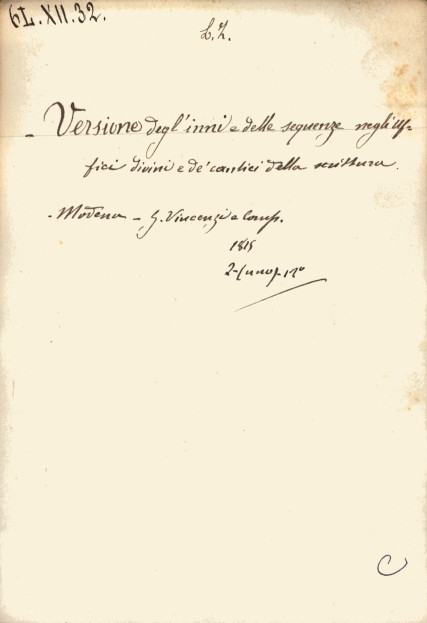 6L.XII.32.
L.Z.
- Versione degl'inni e delle sequenze negli uf-
fici divini e de' cantici della scrittura.
- Modena - G. Vincenzi e Comp.
1815
C